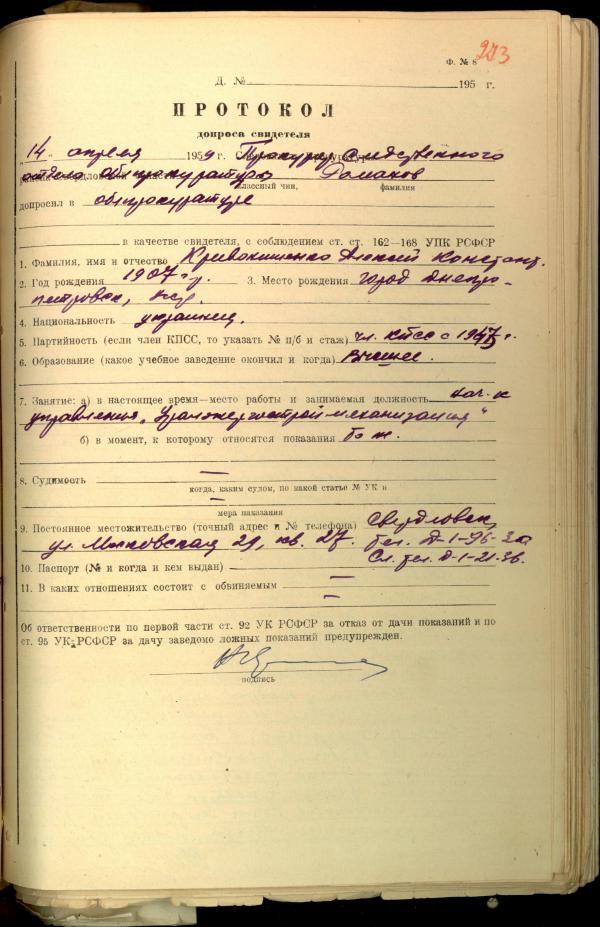 Ф. № 8
273
Д. № 195 г.
ПРОТОКОЛ
допроса свидетеля
14 апреля 1959 Прокурор следственного
отдела облпрокуратуры Романов
классный чин, фамилия
допросил в облпрокуратуре
в качестве свидетеля, с соблюдением ст. ст. 162—168 УПК РСФСР
1. Фамилия, имя и отчество Кривонищенко Алексей Констант.
2. Год рождения 1907 г. 3. Место рождения город Днепро-
петровск,
4. Национальность украинец.
5. Партийность (если член КПСС, то указать № п/б и стаж) чл. КПСС с г.
6. Образование (какое учебное заведение окончил и когда) Высшее.
7. Занятие: а) в настоящее время—место работы и занимаемая должность нач-к
управления „Уралэнергостроймеханизация"
б) в момент, к которому относятся показания То ж.
8. Судимость —
когда, каким судом, по какой статье № УК и
—
мера наказания
9. Постоянное местожительство (точный адрес и № телефона) Свердловск,
ул. Московская 29, кв. 27. тел. Д-1-96-
10. Паспорт (№ и когда и кем выдан) — Сл. тел. Д-1-21-36.
11. В каких отношениях состоит с обвиняемым —
—
Об ответственности по первой части ст. 92 УК РСФСР за отказ от дачи показаний и по
ст. 95 УК РСФСР за дачу заведомо ложных показаний предупрежден.
подпись